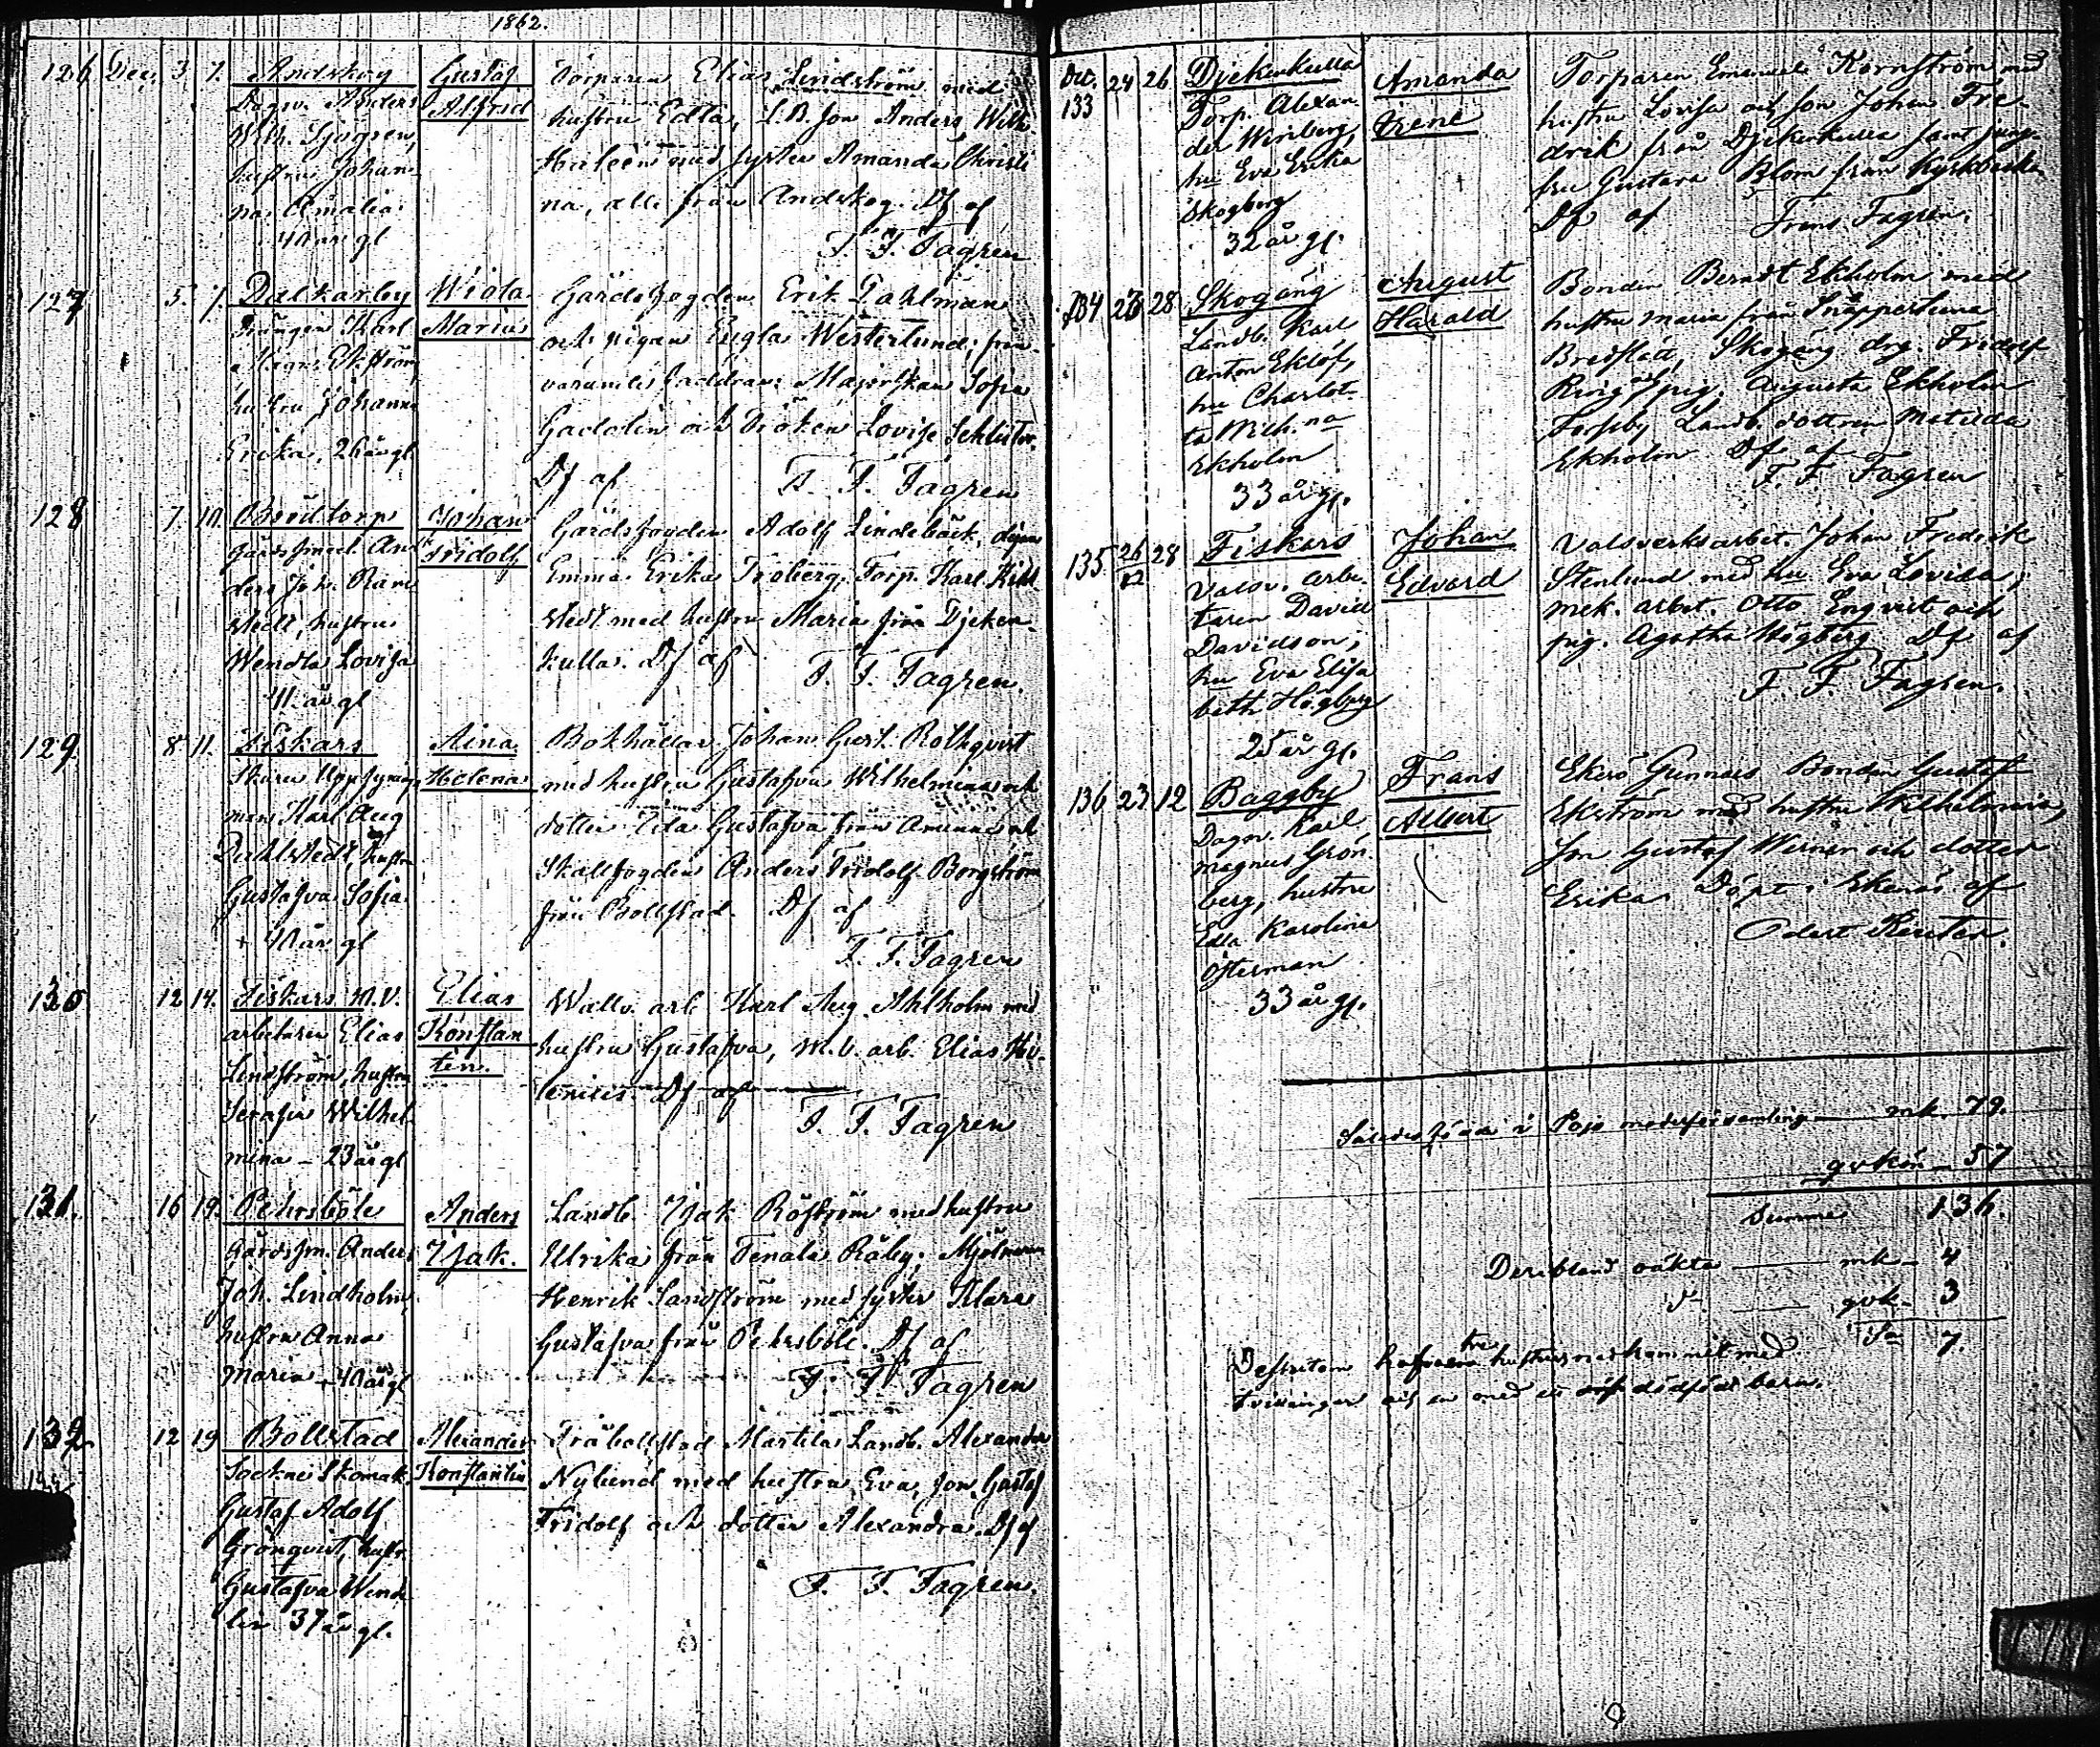 1862.
126 Dec. 3 7. Andskog
Dagsv. Anders
Wilh. Sjögren,
hustru Johan-
na Amalia
40 år gl
Gustaf
Alfred
Torparen Elias Lindström med
hustru Edla, L.B. son Anders Wilh.
med syster Amanda Christi
na, alle från Andskog. Df af
F. F. Fagren
127 5. 7. Dalkarby
Karl
Magn. Ekström
hustru Johanna
Erika, 26 år gl
Wiola
Maria
Gårdsfogden Erik Dahlman
och pigan Engla Westerlund; från-
varande faddrar: Majorskan Sofia
Gadolin och Fröken Lovise Schlüter.
Df af F. F. Fagren
128 7. 10. Brödtorp
gårdssmed. An
ders Joh. Ram
stedt, hustru
Wendla Lovisa
41 år gl
Johan
Fridolf
Gårdsfogden Adolf Lindebäck,
Emma Erika Froberg, Torp. Karl
stedt med hustru Maria från Djeken-
kulla. Df af F. F. Fagren.
129. 8 11. Fiskars
Uppsynings
man Karl Aug
Dahlstedt, hustru
Gustafva Sofia
40 år gl
Aina
Helena
Bokhållar Johan Gust. Rothqvist
med hustru Gustafva Wilhelmina och
dotter Ida Gustafva från
Skallfogden Anders Fridolf Borgström
från Bollstad. Df af
F. F. Fagren
130 12 14. Fiskars M.V.
arbetaren Elias
Lindström, hustru
Serafia Wilhel
mina - 23 år gl
Elias
Konstan
tin.
Walsv. arb Karl Aug. Ahlholm med
hustru Gustafva, M.V. arb. Elias He-
lenius. Df af
F. F. Fagren
131. 16 19. Pehrsböle
Gårdssm. Anders
Joh. Lindholm,
hustru Anna
Maria - 40 år gl
Anders
Isak.
Landb. Isak Röström med hustru
Ulrika från Tenala Råby; Mjölnaren
Henrik Sandström med syster Klara
Gustafva från Pehrsböle. Df af
F. F. Fagren
132. 12 19 Bollstad
Sockne Skomak.
Gustaf Adolf
Grönqvist, hustr.
Gustafva Wend
lin 37 år gl.
Alexander
Konstantin
Från Bollstad Martila Landb. Alexander
Nylund med hustru Eva, son Gustaf
Fridolf och dotter Alexandra. Df af
F. F. Fagren.
Dec.
133 24 26 Djekenkulla
Torp. Alexan
der Wiriberg,
hu Eva Erika
Skogberg
32 år gl.
Amanda
Irene
Torparen Emanuel Kornström med
hustru Lovisa och son Johan Fre-
drik från Djekenkulla samt jung-
fru Gustava Blom från Kyrkbacka
Df af Frans Fagren.
134 26 28 Skogäng
Landb. Karl
Anton Eklöf,
hu Charlot-
ta Wilh.na
Ekholm
33 år gl.
August
Harald
Bonden Berndt Ekholm med
hustru Maria från Snappertuna
Bredslät, Skogäng drg. Fridolf
Ring och pig. Augusta Ekholm
Forsby Landb. dottren Matilda
Ekholm Df af
F. F. Fagren
135 26/12 28 Fiskars
Valsv. arbe-
taren David
Davidson,
hu Eva Elisa
beth Högberg
25 år gl.
Johan
Edvard
Valsverksarbet. Johan Fredrik
Stenlund med hu Eva Lovisa,
mek. arbet. Otto Engqvist och
pig. Agatha Högberg Df af
F. F. Fagren.
136 23 12 Baggby
Dagsv. Karl
Magnus Grön-
berg, hustru
Edla Karolina
Österman
33 år gl.
Frans
Albert
Ekerö Gunnars Bonden Gustaf
Ekström med hustru Wilhelmina,
son Gustaf Werner och dotter
Erika Döpt i Ekenäs af
Odert
Således födda i Pojo moderförsamling mk. 79.
qvkön 57
Summa 136.
Deribland oäkta mk 4
d:o qvk 3
S:a 7.
Dessutom hafva tre hustrur nedkommit med
tvillingar och en med ett dödfödt barn.